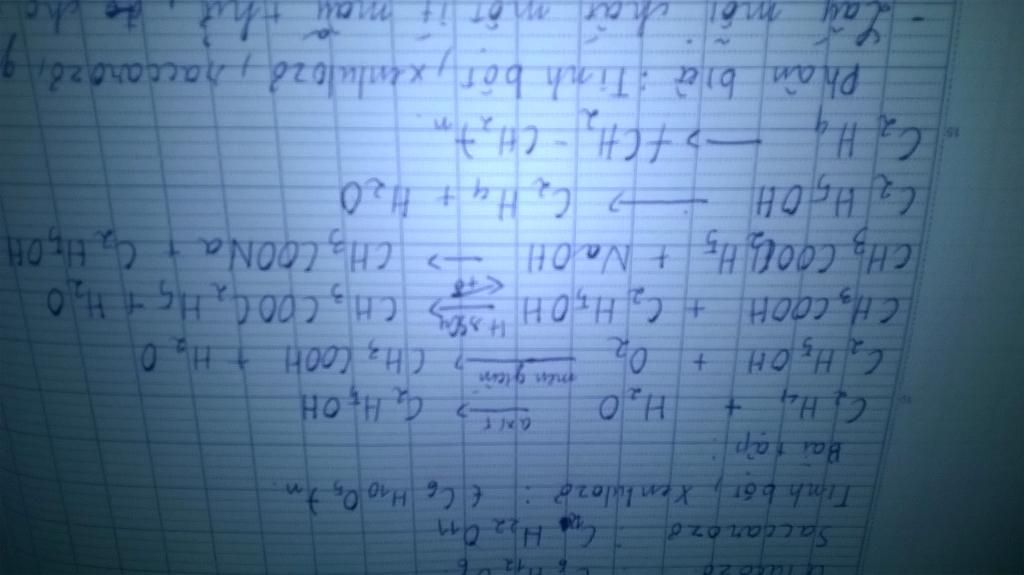 Glucozơ : C6H12O6
Saccarozơ : C12H22O11
Tinh bột, xenlulozơ : (C6H10O5)n
Bài tập :
C2H4 + H2O axit → C2H5OH
C2H5OH + O2 men giấm → CH3COOH + H2O
CH3COOH + C2H5OH H2SO4 ⇌ t° CH3COOC2H5 + H2O
CH3COOC2H5 + NaOH → CH3COONa + C2H5OH
C2H5OH → C2H4 + H2O
C2H4 → (CH2 - CH2)n
Phân biệt : Tinh bột, xenlulozơ, saccarozơ, g
- Lấy mỗi chất một ít mẫu thử, cho